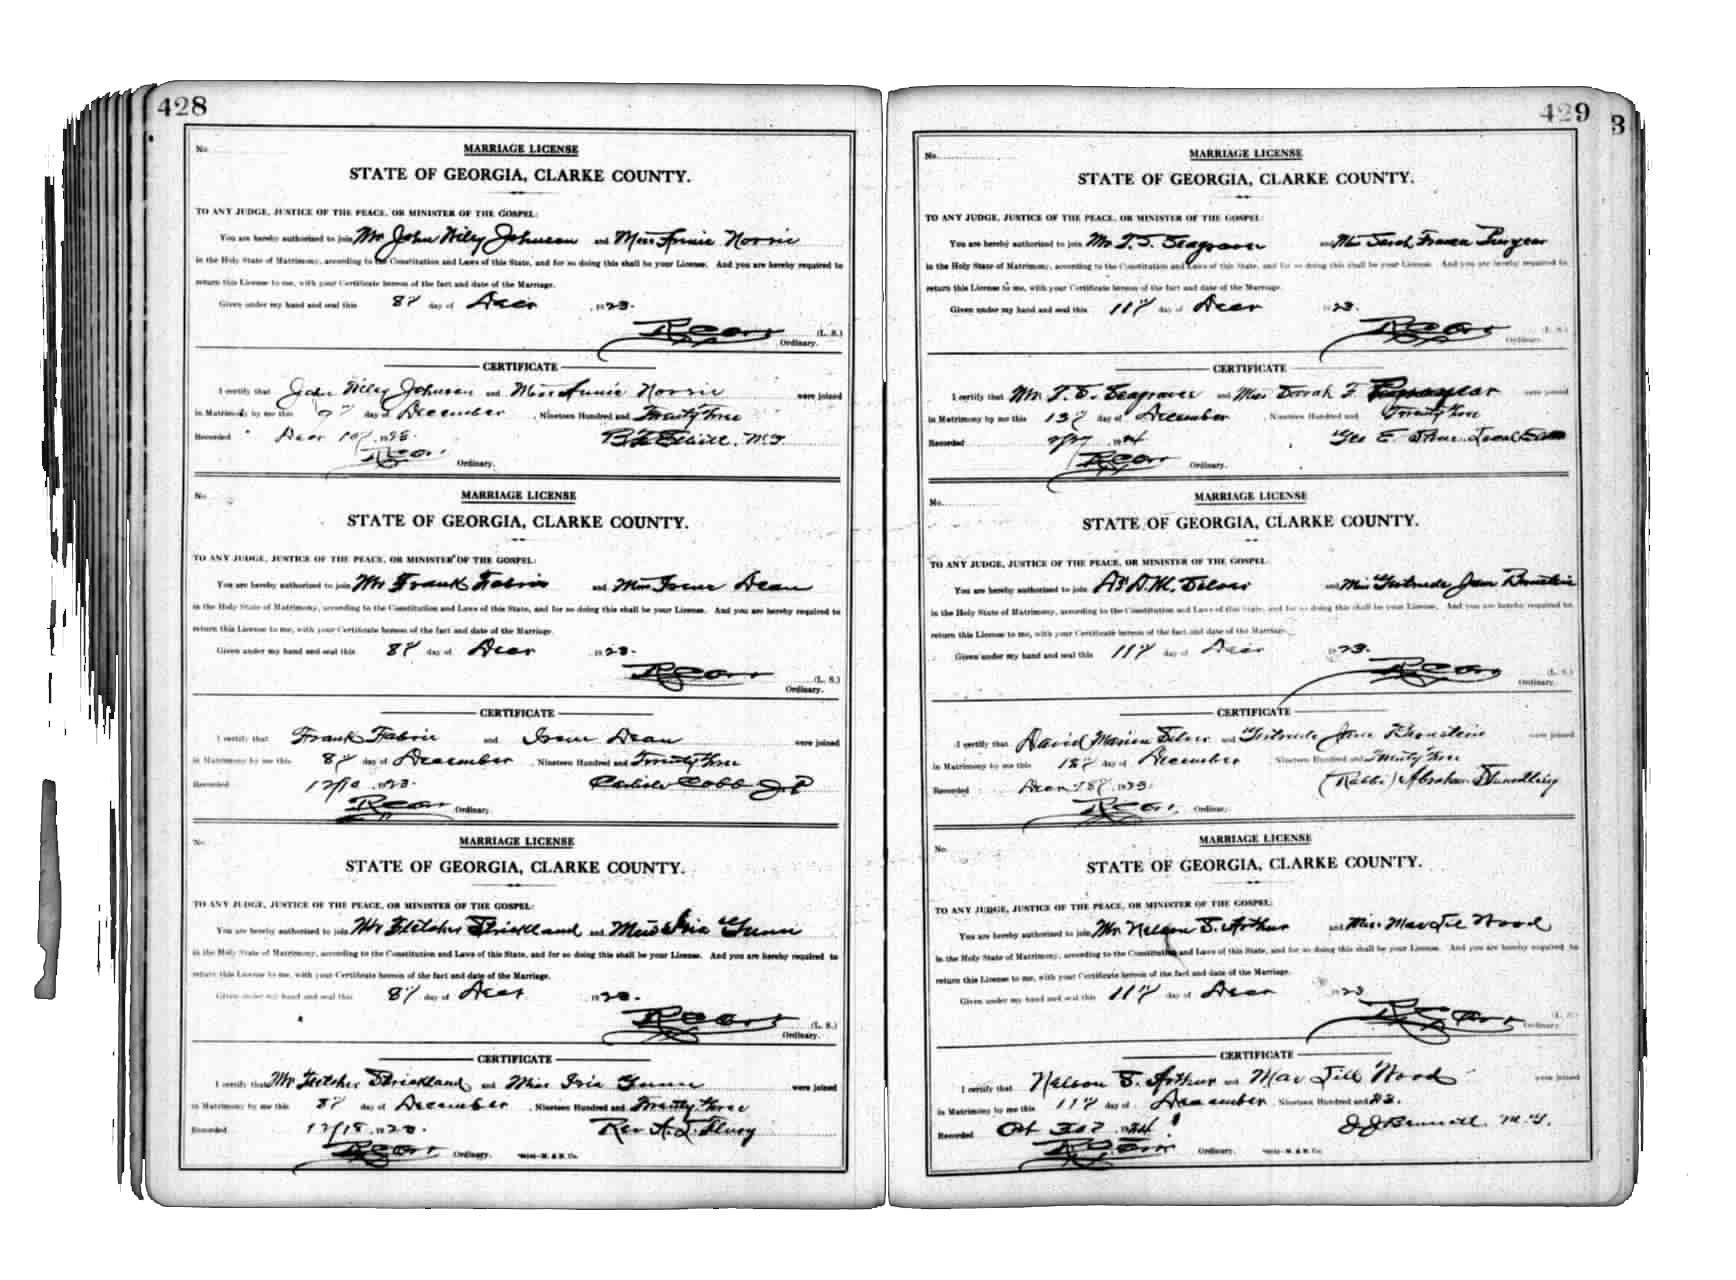 428
No.
MARRIAGE LICENSE
STATE OF GEORGIA, CLARKE COUNTY.
TO ANY JUDGE, JUSTICE OF THE PEACE, OR MINISTER OF THE GOSPEL:
You are hereby authorized to join Mr John Wiley Johnson and Miss Annie Norris
in the Holy State of Matrimony, according to the Constitution and Laws of this State, and for so doing this shall be your License. And you are hereby required to
return this License to me, with your Certificate hereon of the fact and date of the Marriage.
Given under my hand and seal this 8" day of Decr 1923.
(L. S.)
Ordinary.
CERTIFICATE
I certify that John Wiley Johnson and Miss Annie Norris were joined
in Matrimony by me this day of December, Nineteen Hundred and Twenty three
Recorded Decr 10" 1923. M.G.
Ordinary.
No.
MARRIAGE LICENSE
STATE OF GEORGIA, CLARKE COUNTY.
TO ANY JUDGE, JUSTICE OF THE PEACE, OR MINISTER OF THE GOSPEL:
You are hereby authorized to join Mr Frank Fabris and Miss Irene Dean
in the Holy State of Matrimony, according to the Constitution and Laws of this State, and for so doing this shall be your License. And you are hereby required to
return this License to me, with your Certificate hereon of the fact and date of the Marriage.
Given under my hand and seal this 8" day of Decr 1923.
(L. S.)
Ordinary.
CERTIFICATE
I certify that Frank Fabris and Irene Dean were joined
in Matrimony by me this 8" day of December, Nineteen Hundred and Twenty three
Recorded 12/10 1923. Carlisle Cobb J.P.
Ordinary.
No.
MARRIAGE LICENSE
STATE OF GEORGIA, CLARKE COUNTY.
TO ANY JUDGE, JUSTICE OF THE PEACE, OR MINISTER OF THE GOSPEL:
You are hereby authorized to join Mr Fletcher Strickland and Miss Iris Gunn
in the Holy State of Matrimony, according to the Constitution and Laws of this State, and for so doing this shall be your License. And you are hereby required to
return this License to me, with your Certificate hereon of the fact and date of the Marriage.
Given under my hand and seal this 8" day of Decr 1923.
(L. S.)
Ordinary.
CERTIFICATE
I certify that Mr Fletcher Strickland and Miss Iris Gunn were joined
in Matrimony by me this 8" day of December, Nineteen Hundred and Twenty three
Recorded 12/18 1923. Rev A. L. Flury
Ordinary.
429
3
No.
MARRIAGE LICENSE
STATE OF GEORGIA, CLARKE COUNTY.
TO ANY JUDGE, JUSTICE OF THE PEACE, OR MINISTER OF THE GOSPEL:
You are hereby authorized to join Mr T. S. Seagraves and Miss Sarah Frances Puryear
in the Holy State of Matrimony, according to the Constitution and Laws of this State, and for so doing this shall be your License. And you are hereby required to
return this License to me, with your Certificate hereon of the fact and date of the Marriage.
Given under my hand and seal this 11" day of Decr 1923.
(L. S.)
Ordinary.
CERTIFICATE
I certify that Mr. T. S. Seagraves and Miss Sarah F. Puryear were joined
in Matrimony by me this 13" day of December, Nineteen Hundred and Twenty three
Recorded 1924 Geo E. Stone. Local
Ordinary.
No.
MARRIAGE LICENSE
STATE OF GEORGIA, CLARKE COUNTY.
TO ANY JUDGE, JUSTICE OF THE PEACE, OR MINISTER OF THE GOSPEL.
You are hereby authorized to join D. M. Silver and Miss Gertrude Jean Bernstein
in the Holy State of Matrimony, according to the Constitution and Laws of this State, and for so doing this shall be your License. And you are hereby required to
return this License to me, with your Certificate hereon of the fact and date of the Marriage.
Given under my hand and seal this 11" day of Decr 1923.
(L. S.)
Ordinary.
CERTIFICATE
I certify that David Marion Silver and Gertrude Jean Bernstein were joined
in Matrimony by me this 18" day of December Nineteen Hundred and Twenty three
Recorded Decr 1923. (Rabbi) Abraham
Ordinar.
No.
MARRIAGE LICENSE
STATE OF GEORGIA, CLARKE COUNTY.
TO ANY JUDGE, JUSTICE OF THE PEACE, OR MINISTER OF THE GOSPEL:
You are hereby authorized to join Mr. Nelson S. Arthur and Miss Wood
in the Holy State of Matrimony, according to the Constitution and Laws of this State, and for so doing this shall be your License. And you are hereby required to
return this License to me, with your Certificate hereon of the fact and date of the Marriage.
Given under my hand and seal this 11" day of Decr 1923
(L. S.)
Ordinary.
CERTIFICATE
I certify that Nelson S. Arthur and Wood were joined
in Matrimony by me this 11" day of December, Nineteen Hundred and 23.
Recorded Oct 1924 M.G.
Ordinary.